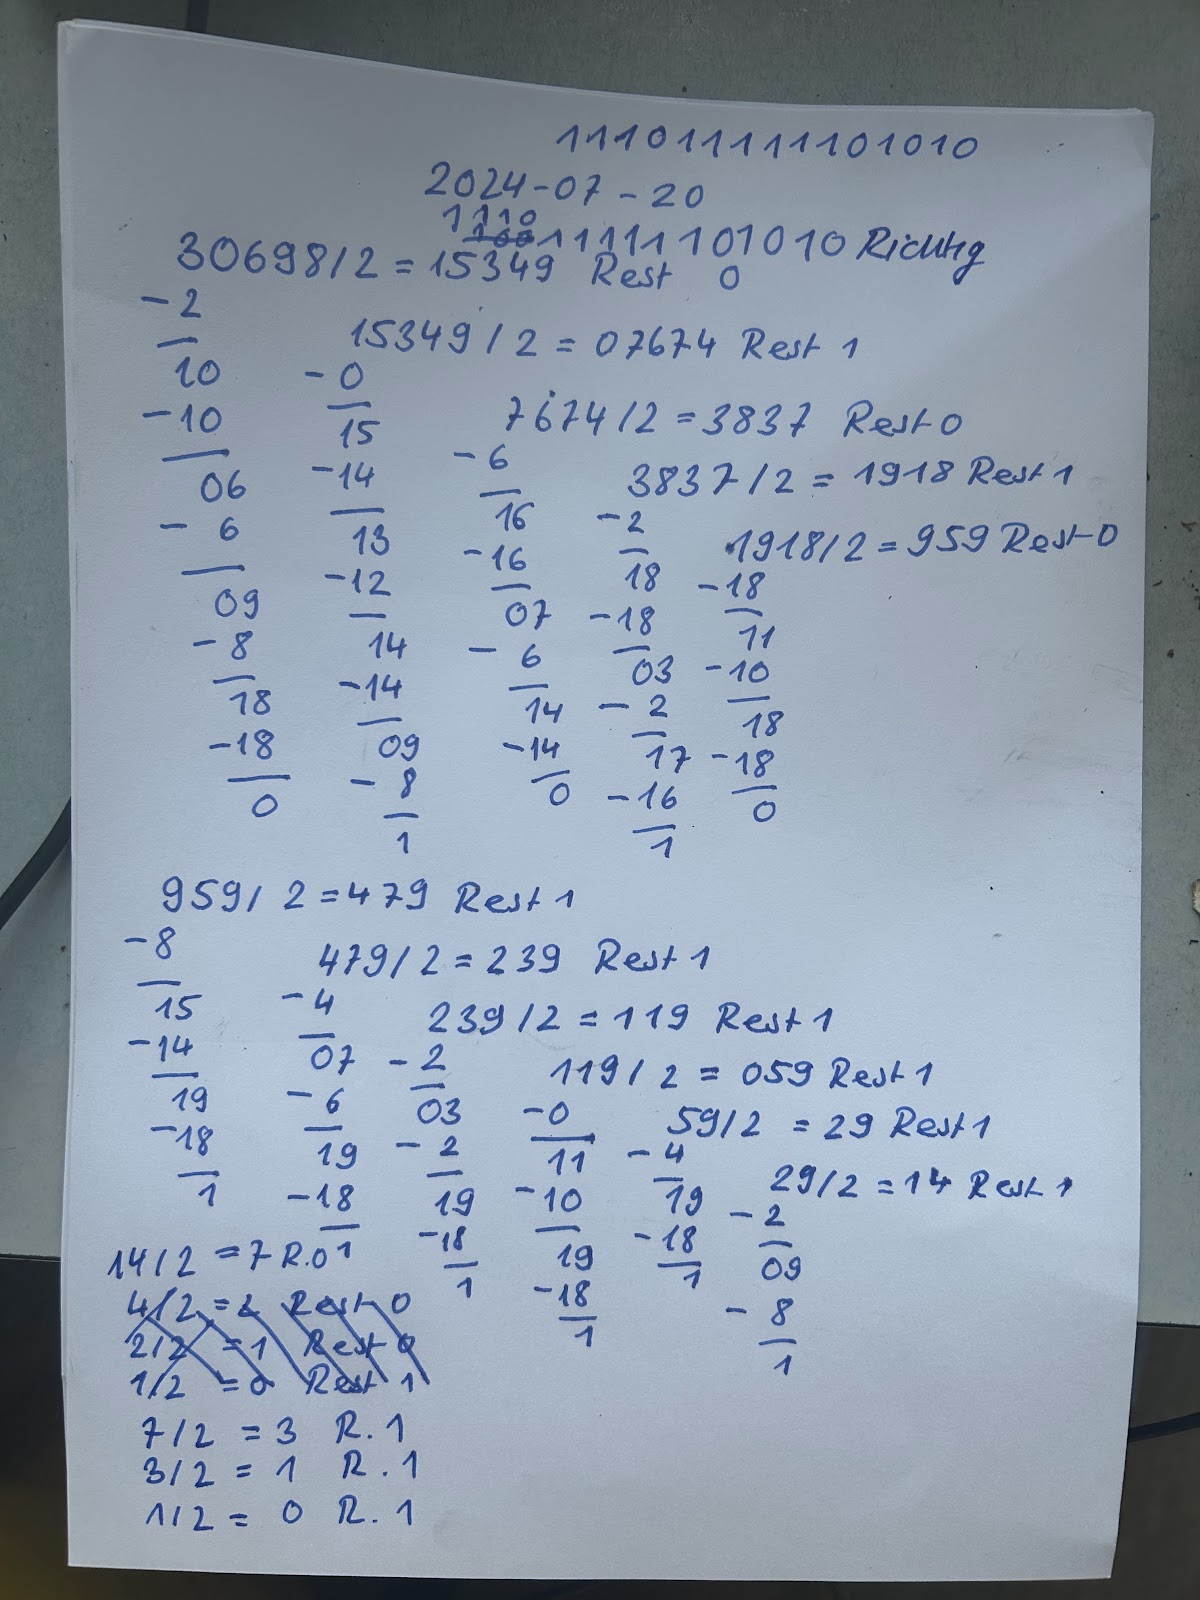 111011111101010
2024-07-20
1110
100 11111101010 Richtig
30698/2 = 15349 Rest 0
-2
10
-10
06
-6
09
-8
18
-18
0
15349/2 = 07674 Rest 1
-0
15
-14
13
-12
14
-14
09
-8
1
7674/2 = 3837 Rest 0
-6
16
-16
07
-6
14
-14
0
3837/2 = 1918 Rest 1
-2
18
-18
03
-2
17
-16
1
1918/2 = 959 Rest 0
-18
11
-10
18
-18
0
959/2 = 479 Rest 1
-8
15
-14
19
-18
1
479/2 = 239 Rest 1
-4
07
-6
19
-18
1
239/2 = 119 Rest 1
-2
03
-2
19
-18
1
119/2 = 059 Rest 1
-0
11
-10
19
-18
1
59/2 = 29 Rest 1
-4
19
-18
1
29/2 = 14 Rest 1
-2
09
-8
1
14/2 = 7 R.0
4/2 = 2 Rest 0
2/2 = 1 Rest 0
1/2 = 0 Rest 1
7/2 = 3 R. 1
3/2 = 1 R. 1
1/2 = 0 R. 1